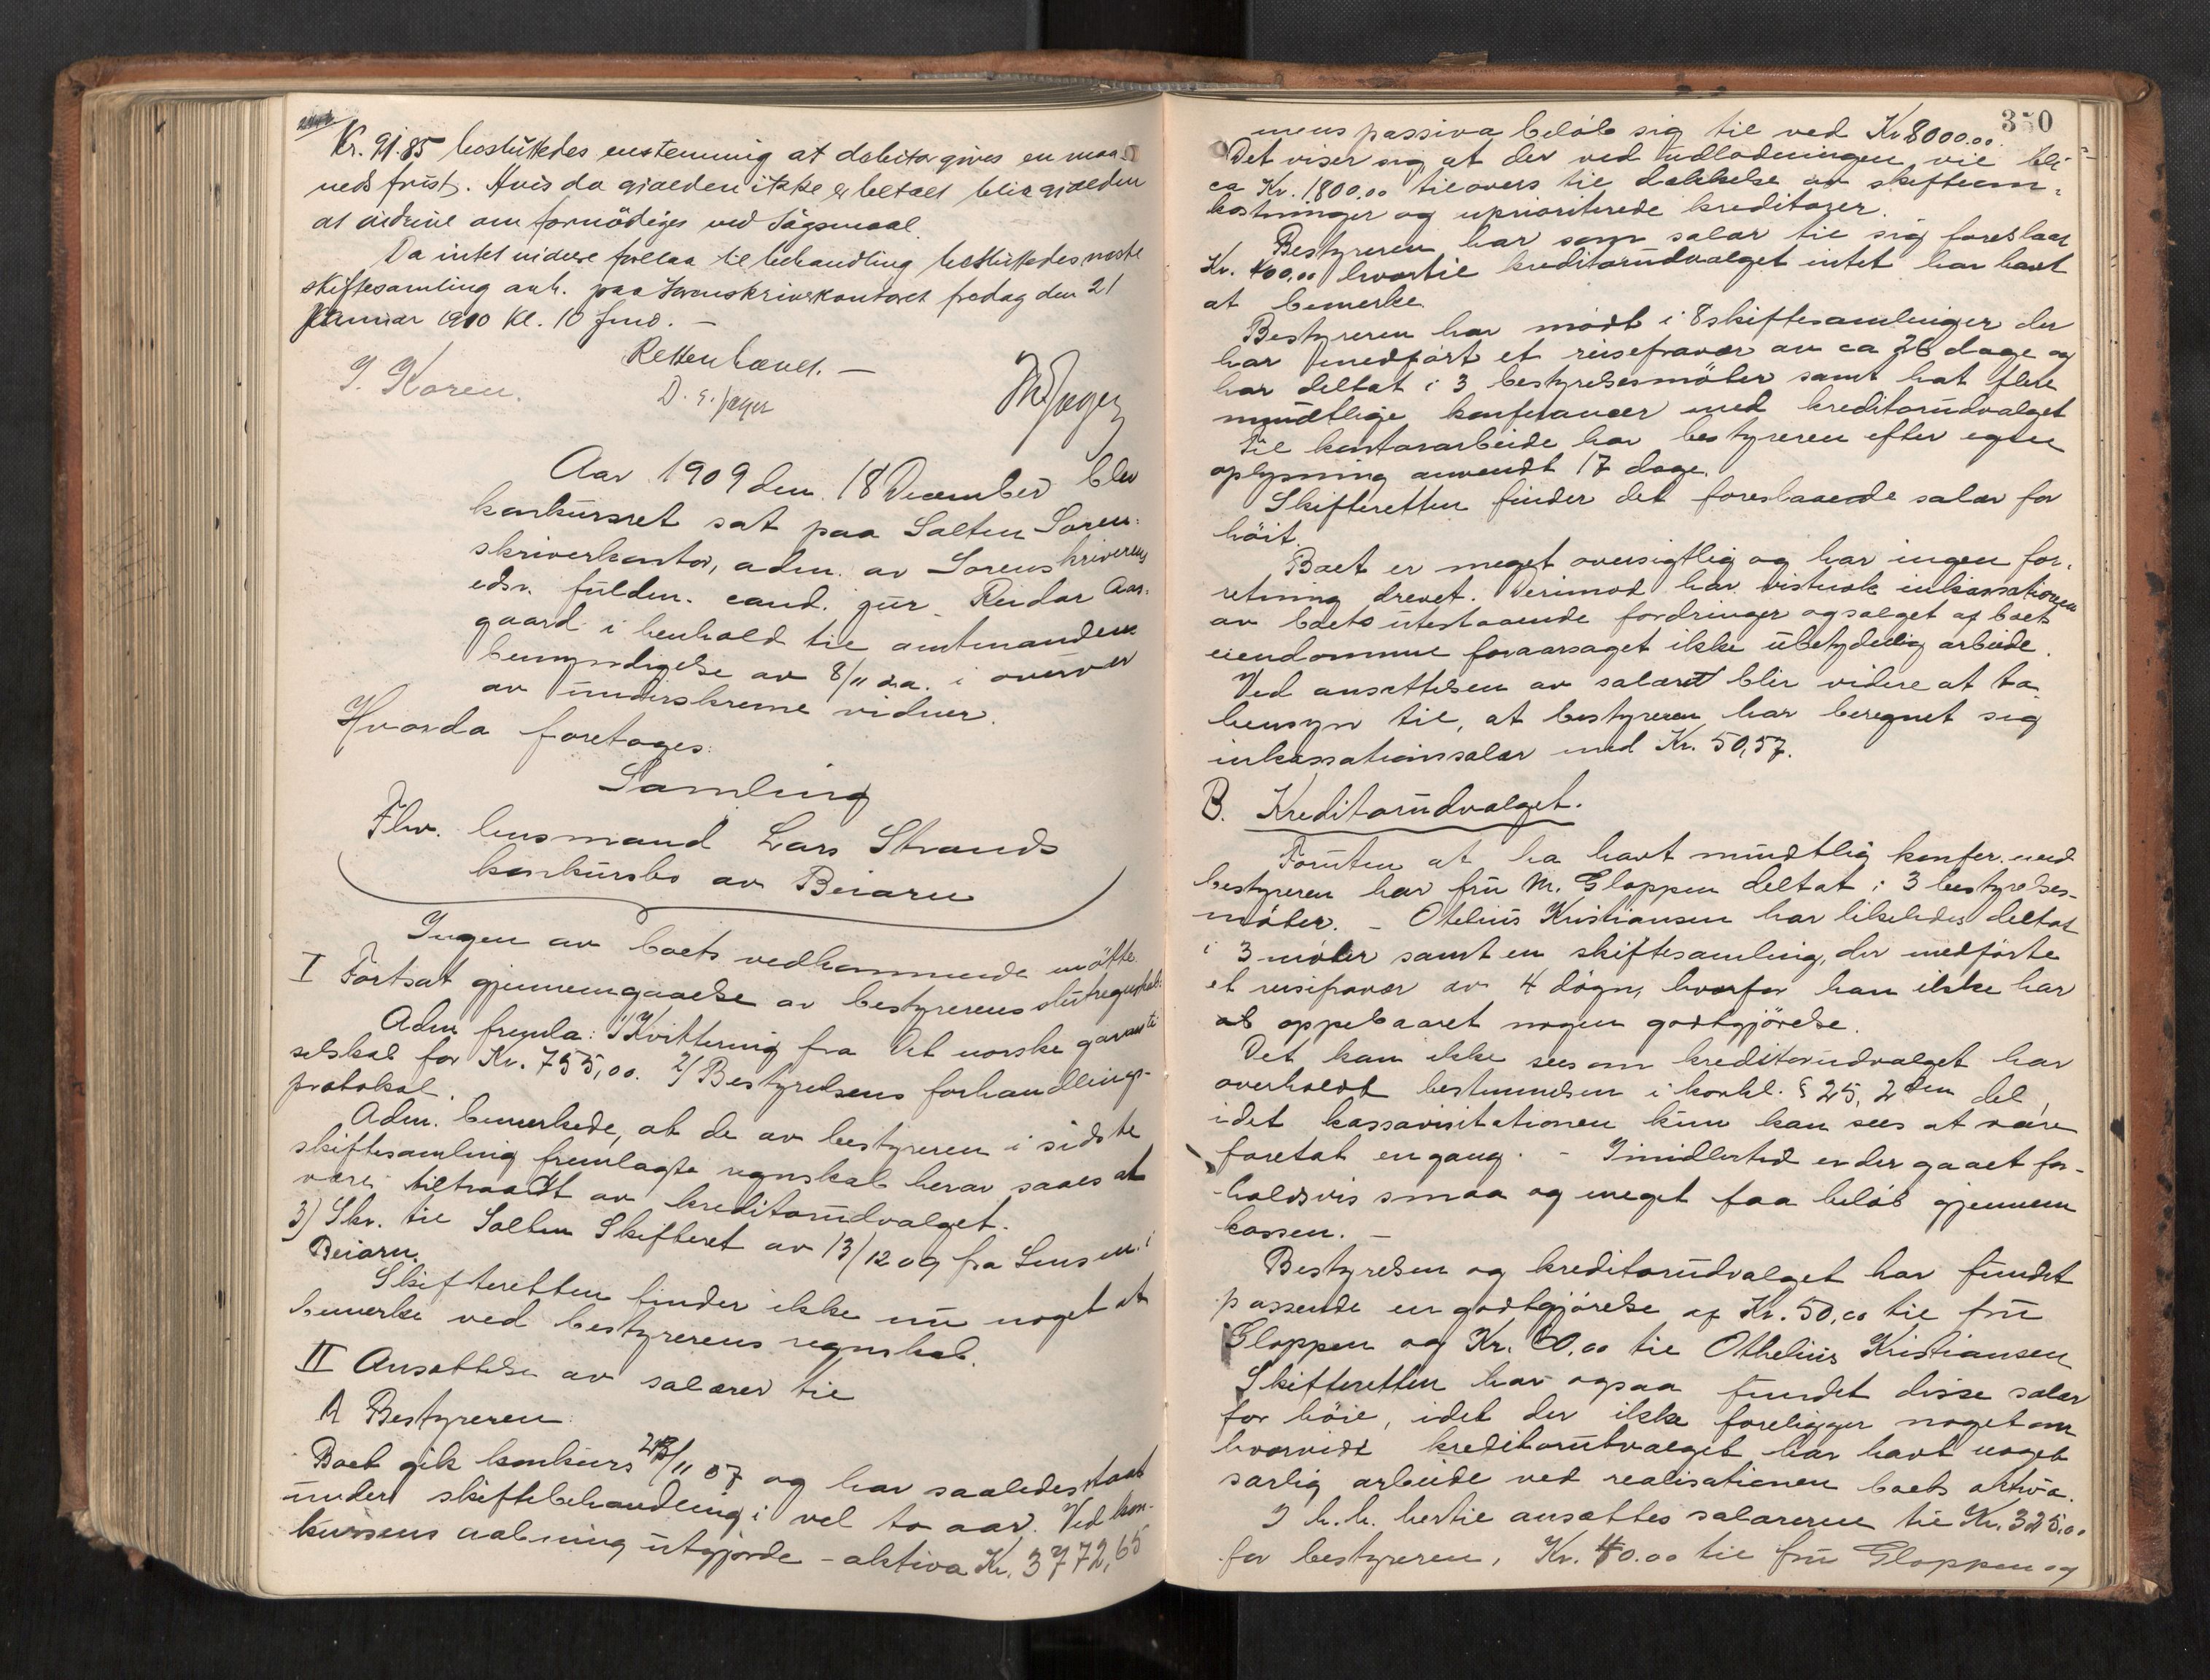 Kr. 91.85 besluttedes enstemmig at debitor gives en maa-
neds frist. Hvis da gjælden ikke er betalt blir gjælden
at inddrive om fornödiges ved Sögsmaal.
Da intet videre forelaa til behandling besluttedes næste
skiftesamling anb. paa Sorenskriverkontoret fredag den 21
Januar 1910 Kl. 10 fmd. –
Retten hævet. –
J. Koren.
D. E. Jæger
Aar 1909 den 18 December blev
konkursret sat paa Salten Soren:
skriverkontor, adm. av Sorenskriverens
edsv. fuldm. cand. jur. Reidar Aas:
gaard i henhold til amtmandens
bemyndigelse av 8/11 d.a. i overvær
av underskrevne vidner.
Hvorda foretoges:
Samling
Fhv. husmand Lars Strands
konkursbo av Beiarn
Ingen av boets vedkommende mötte.
I Fortsat gjennemgaaelse av bestyrerens slutregnskab:
Adm fremla: 1/ Kvittering fra Det norske garanti
selskab for Kr. 755,00. 2/ Bestyrelsens forhandlings-
protokol.
Adm. bemerkede, at de av bestyreren i sidste
skiftesamling fremlagte regnskab herav saaes at
være tiltraadt av kreditorudvalget.
3) Skr. til Salten Skifteret av 13/12 09 fra Lensm. i
Beiarn.
Skifteretten finder ikke nu noget at
bemerke ved bestyrerens regnskab.
II Ansættelse av salærer til
A Bestyreren:
Boet gik konkurs /11 07 og har saaledes staat
under skiftebehandling i vel to aar. Ved kon-
kursens aabning utgjorde – aktiva Kr. 3772,65
350
mens passiva beløb sig til ved Kr 8000.00.
Det viser sig, at der ved udlodningen vil bli
ca Kr. 1800,00 tilovers til dækkelse av skifteom:
kostninger og uprioriterede kreditorer.
Bestyreren har som salær til sig foreslaat
Kr. 400,00 hvortil kreditorudvalget intet har havt
at bemerke.
Bestyreren har mödt i 8 skiftesamlinger der
har medført et reisefravær av ca 26 dage og
har deltat i 3 bestyrelsesmöter samt hat flere
mundtlige konferancer med kreditorudvalget
Til kontorarbeide har bestyreren efter egen
oplysning anvendt 17 dage.
Skifteretten finder det foreslaaede salær for
höit.
Boet er meget oversigtlig og har ingen for-
retning drevet. Derimod har vistnok inkassationen
av boets utestaaende fordringer og salget af boets
eiendomme foraarsaget ikke ubetydelig arbeide.
Ved ansættelsen av salæret blir videre at ta
hensyn til, at bestyreren har beregnet sig
inkassationssalær med Kr. 50,57.
B. Kreditorudvalget.
Foruten at ha havt mundtlig konfer. med
bestyreren har fru M. Gloppen deltat i 3 bestyrelses-
möter. – Otelius Kristiansen har likeledes deltat
i 3 möter samt en skiftesamling, der medførte
et reisefravær av 4 dögn, hvorfor han ikke har
oppebaaret nogen godtgjörelse.
Det kan ikke sees om kreditorudvalget har
overholdt bestemmelsen i konkl. § 25, 2den del,
idet kassavisitationen kun kan sees at være
foretat en gang. – Imidlertid er der gaaet for-
holdsvis smaa og meget faa belöb gjennem
kassen. –
Bestyrelsen og kreditorudvalget har fundet
passende en godtgjörelse af Kr. 50,00 til fru
Gloppen og Kr. 60.00 til Othelius Kristiansen
Skifteretten har ogsaa fundet disse salær
for höie, idet der ikke foreligger noget om
hvorvidt kreditorutvalget har havt noget
særlig arbeide ved realisationen boets aktiva.
I h.h. hertil ansættes salærerne til Kr. 325.00
for bestyreren, Kr. 40.00 til fru Gloppen og